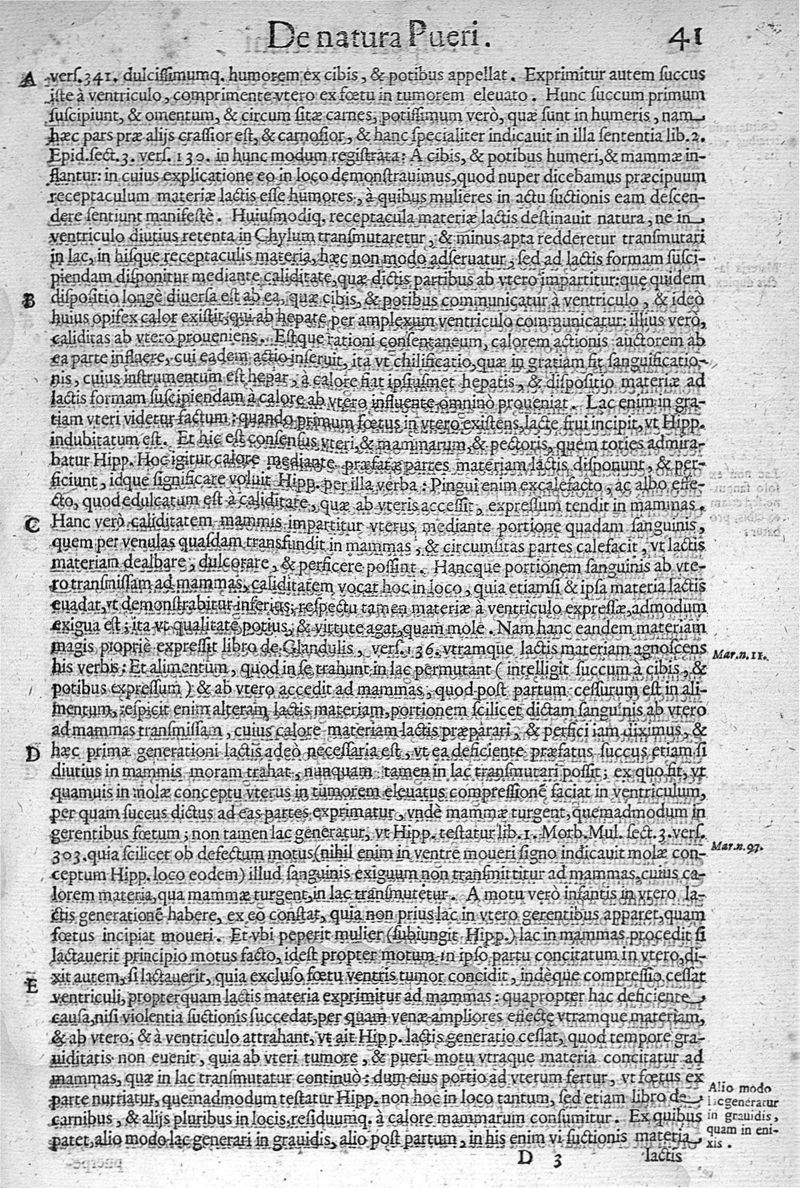 De natura Pueri. 41
A vers. 341. dulcissimumq. humorem ex cibis, & potibus appellat. Exprimitur autem succus
iste à ventriculo, comprimente vtero ex fœtu in tumorem eleuato. Hunc succum primum
suscipiunt, & omentum, & circum sitæ carnes, potissimum verò, quæ sunt in humeris, nam
hæc pars præ alijs crassior est, & carnosior, & hanc specialiter indicauit in illa sententia lib. 2.
Epid. sect. 3. vers. 130. in hunc modum registrata: A cibis, & potibus humeri, & mammæ in-
flantur: in cuius explicatione eo in loco demonstrauimus, quod nuper dicebamus præcipuum
receptaculum materiæ lactis esse humores, à quibus mulieres in actu suctionis eam descen-
dere sentiunt manifestè. Huiusmodiq. receptacula materiæ lactis destinauit natura, ne in
ventriculo diutius retenta in Chylum transmutaretur, & minus apta redderetur transmutari
in lac, in hisque receptaculis materia, hæc non modo adseruatur, sed ad lactis formam susci-
piendam disponitur mediante caliditate, quæ dictis partibus ab vtero impartitur: que quidem
B dispositio longè diuersa est ab ea, quæ cibis, & potibus communicatur à ventriculo, & ideò
huius opifex calor existit, qui ab hepate per amplexum ventriculo communicatur: illius verò,
caliditas ab vtero proueniens. Estque rationi consentaneum, calorem actionis auctorem ab
ea parte influere, cui eadem actio inseruit, ita vt chilificatio, quæ in gratiam fit sanguificatio-
nis, cuius instrumentum est hepar, à calore fiat ipsiusmet hepatis, & dispositio materiæ ad
lactis formam suscipiendam à calore ab vtero influente omninò proueniat. Lac enim in gra-
tiam vteri videtur factum: quando primum fœtus in vtero existens, lacte frui incipit, vt Hipp.
indubitatum est. Et hic est consensus vteri, & mammarum, & pectoris, quem toties admira-
batur Hipp. Hoc igitur calore mediante præfatæ partes materiam lactis disponunt, & per-
ficiunt, idque significare voluit Hipp. per illa verba: Pingui enim excalefacto, ac albo effe-
cto, quod edulcatum est à caliditate, quæ ab vteris accessit, expressum tendit in mammas.
C Hanc verò caliditatem mammis impartitur vterus mediante portione quadam sanguinis,
quem per venulas quasdam transfundit in mammas, & circumsitas partes calefacit, vt lactis
materiam dealbare, dulcorare, & perficere possint. Hancque portionem sanguinis ab vte-
ro transmissam ad mammas, caliditatem vocat hoc in loco, quia etiamsi & ipsa materia lactis
euadat, vt demonstrabitur inferius, respectu tamen materiæ à ventriculo expressæ, admodum
exigua est; ita vt qualitate potius, & virtute agat, quam mole. Nam hanc eandem materiam
magis propriè expressit libro de Glandulis, vers. 136. vtramque lactis materiam agnoscens Mar. n. 11.
his verbis: Et alimentum, quod in se trahunt in lac permutant (intelligit succum à cibis, &
potibus expressum) & ab vtero accedit ad mammas, quod post partum cessurum est in ali-
mentum, respicit enim alteram lactis materiam, portionem scilicet dictam sanguinis ab vtero
ad mammas transmissam, cuius calore materiam lactis præparari, & perfici iam diximus, &
D hæc primæ generationi lactis adeò necessaria est, vt ea deficiente præfatus succus etiam si
diutius in mammis moram trahat, nunquam tamen in lac transmutari possit; ex quo fit, vt
quamuis in molæ conceptu vterus in tumorem eleuatus compressionē faciat in ventriculum,
per quam succus dictus ad eas partes exprimatur, vndè mammæ turgent, quemadmodum in
gerentibus fœtum; non tamen lac generatur, vt Hipp. testatur lib. 1. Morb. Mul. sect. 3. vers.
303. quia scilicet ob defectum motus (nihil enim in ventre moueri signo indicauit molæ con- Mar. n. 97.
ceptum Hipp. loco eodem) illud sanguinis exiguum non transmittitur ad mammas, cuius ca-
lorem materia, qua mammæ turgent, in lac transmutetur. A motu verò infantis in vtero la-
ctis generationē habere, ex eo constat, quia non prius lac in vtero gerentibus apparet, quam
fœtus incipiat moueri. Et vbi peperit mulier (subiungit Hipp.) lac in mammas procedit si
lactauerit principio motus facto, idest propter motum in ipso partu concitatum in vtero, di-
E xit autem, si lactauerit, quia excluso fœtu ventris tumor concidit, indèque compressio cessat
ventriculi, propterquam lactis materia exprimitur ad mammas: quapropter hac deficiente
causa, nisi violentia suctionis succedat, per quam venæ ampliores effectę vtramque materiam,
& ab vtero, & à ventriculo attrahant, vt ait Hipp. lactis generatio cessat, quod tempore gra-
uiditatis non euenit, quia ab vteri tumore, & pueri motu vtraque materia concitatur ad
mammas, quæ in lac transmutatur continuò: dum eius portio ad vterum fertur, vt fœtus ex
parte nutriatur, quemadmodum testatur Hipp. non hoc in loco tantum, sed etiam libro de
carnibus, & alijs pluribus in locis, residuumq. à calore mammarum consumitur. Ex quibus
patet, alio modo lac generari in grauidis, alio post partum, in his enim vi suctionis materia
Alio modo
lac generatur
in grauidis,
quam in eni-
xis.
D 3 lactis